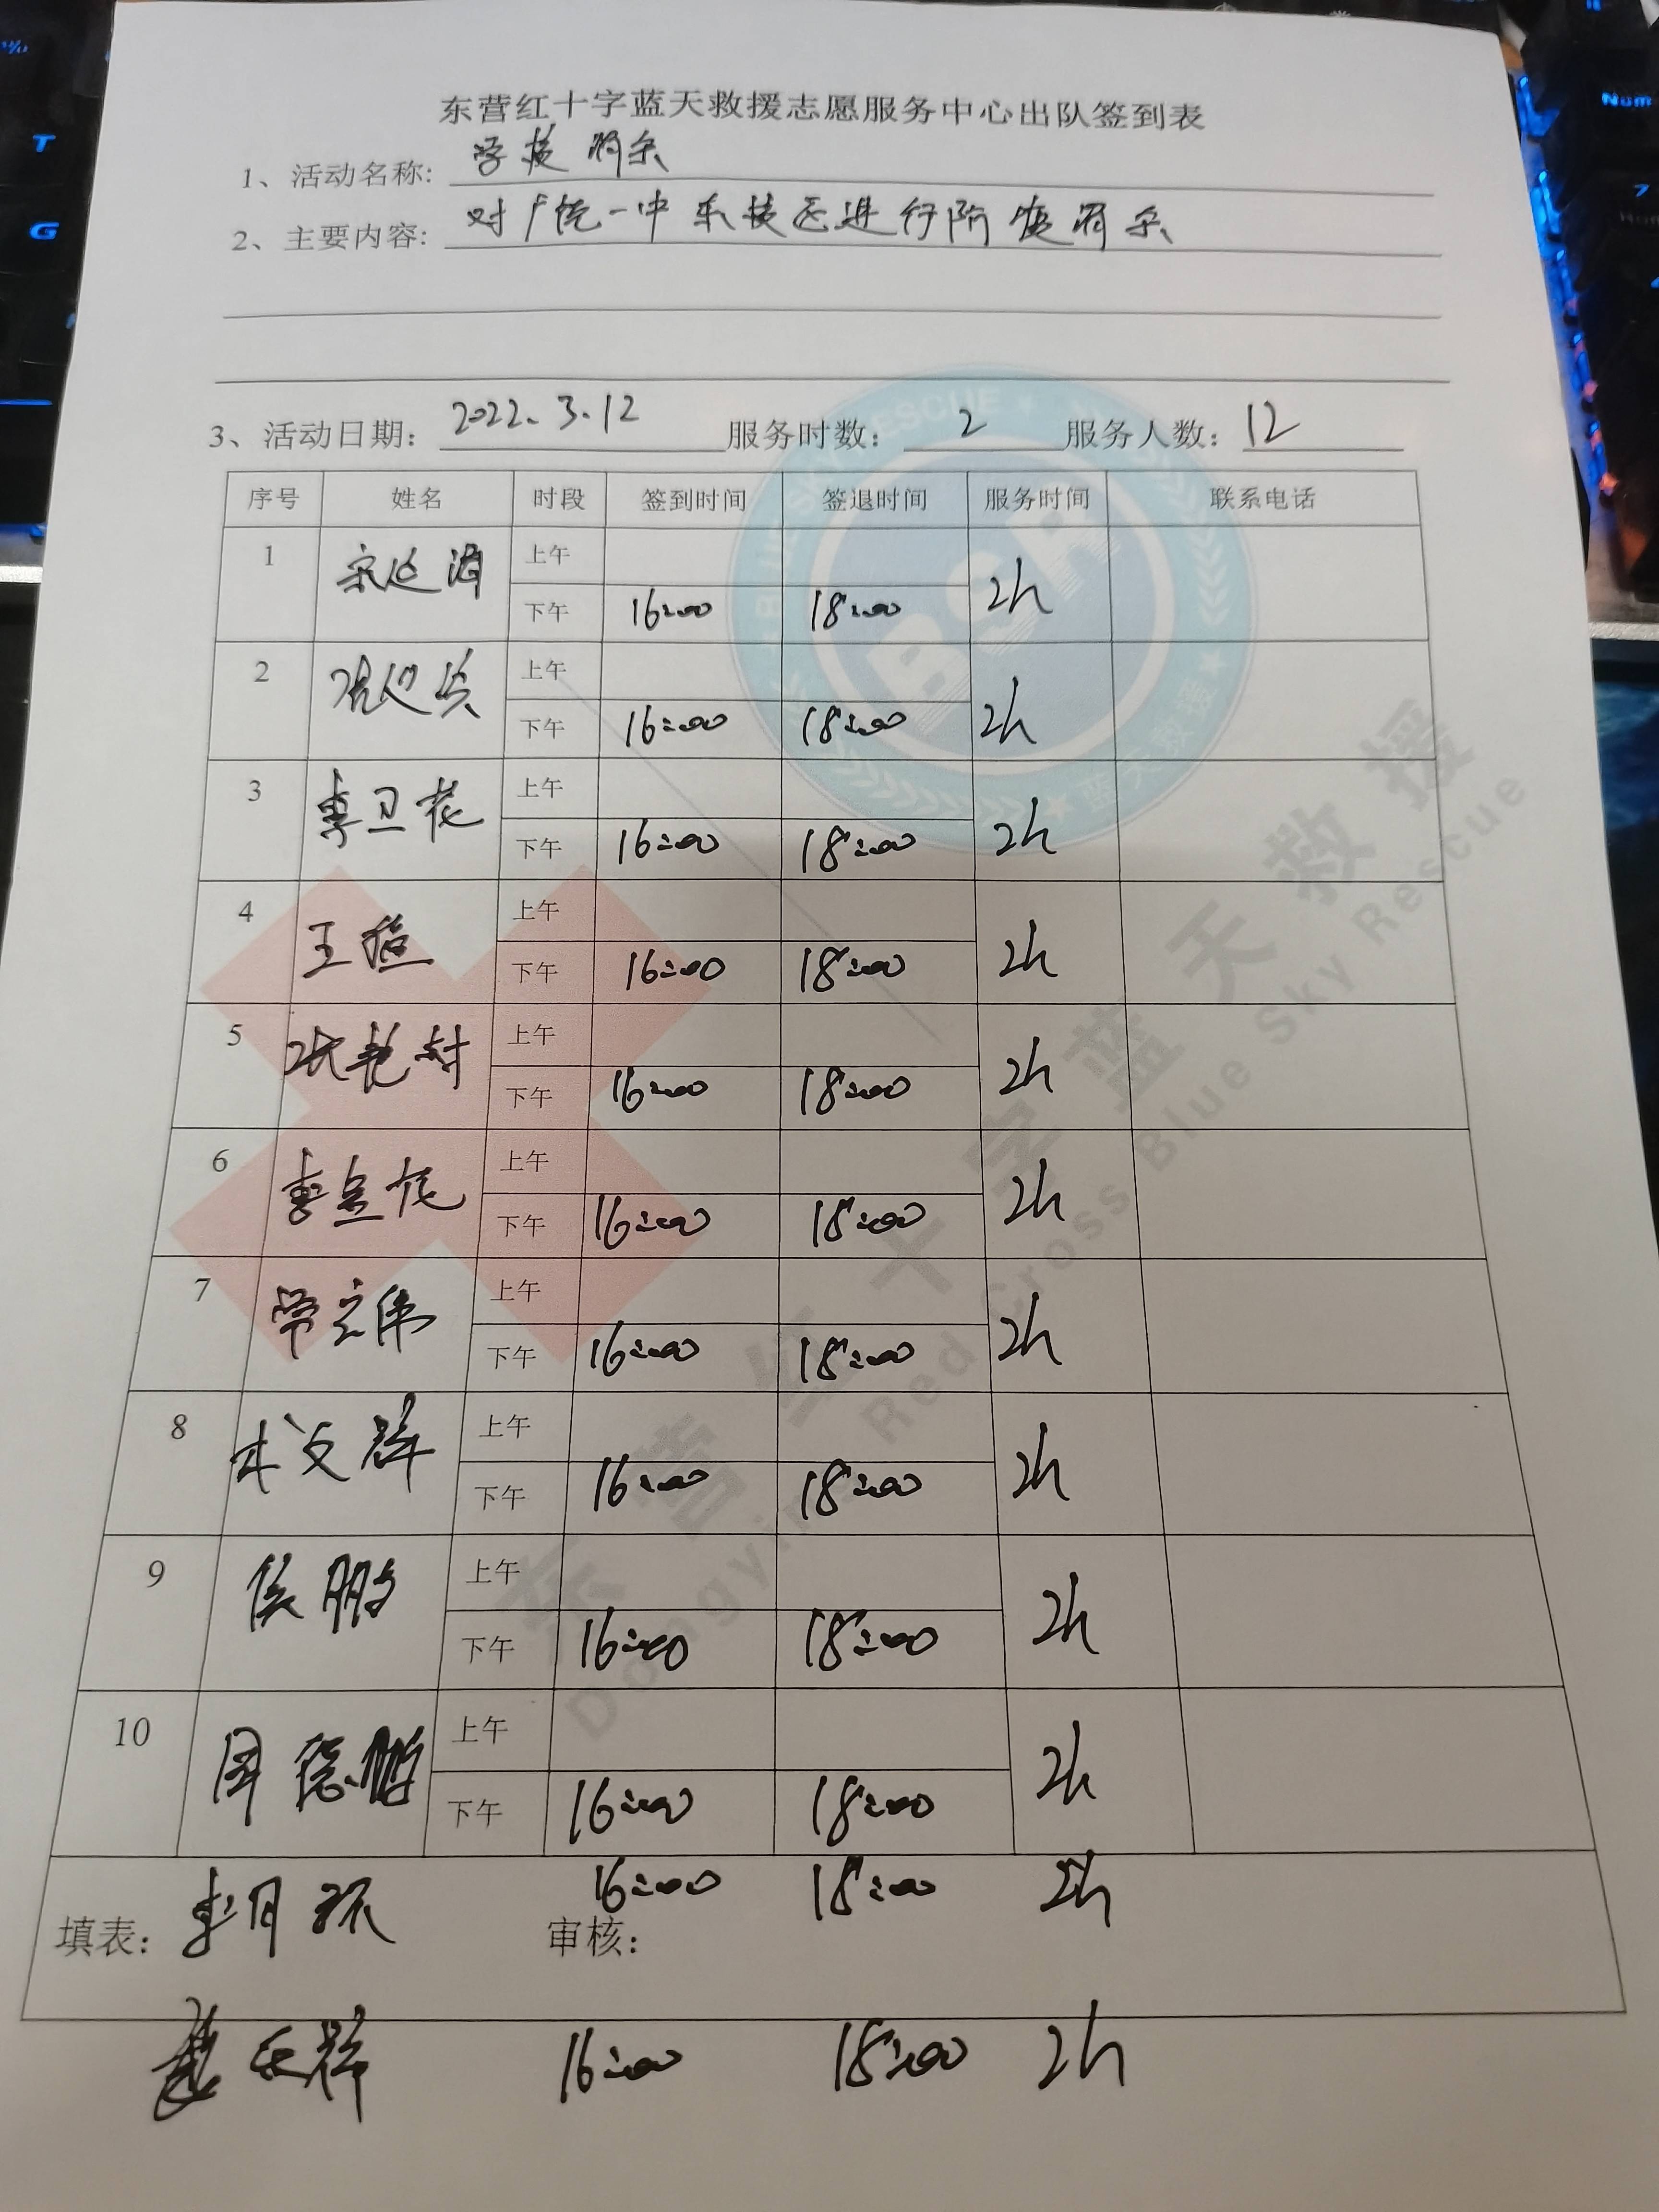 东营红十字蓝天救援志愿服务中心出队签到表
1、活动名称: 学校消杀
2、主要内容: 对广饶一中东校区进行防疫消杀
3、活动日期: 2022.3.12 服务时数: 2 服务人数: 12
序号 姓名 时段 签到时间 签退时间 服务时间 联系电话
1 宋延海 上午
下午 16:00 18:00 2h
2 上午
下午 16:00 18:00 2h
3 李卫花 上午
下午 16:00 18:00 2h
4 王 上午
下午 16:00 18:00 2h
5 张艳 上午
下午 16:00 18:00 2h
6 李 花 上午
下午 16:00 18:00 2h
7 常立伟 上午
下午 16:00 18:00 2h
8 文群 上午
下午 16:00 18:00 2h
9 侯鹏 上午
下午 16:00 18:00 2h
10 周德 上午
下午 16:00 18:00 2h
填表: 李月环 审核: 16:00 18:00 2h
群 16:00 18:00 2h
BLUE SKY RESCUE
BSR
蓝天救援
东营红十字蓝天救援
Dongying Red Cross Blue Sky Rescue
T
G
Num
7